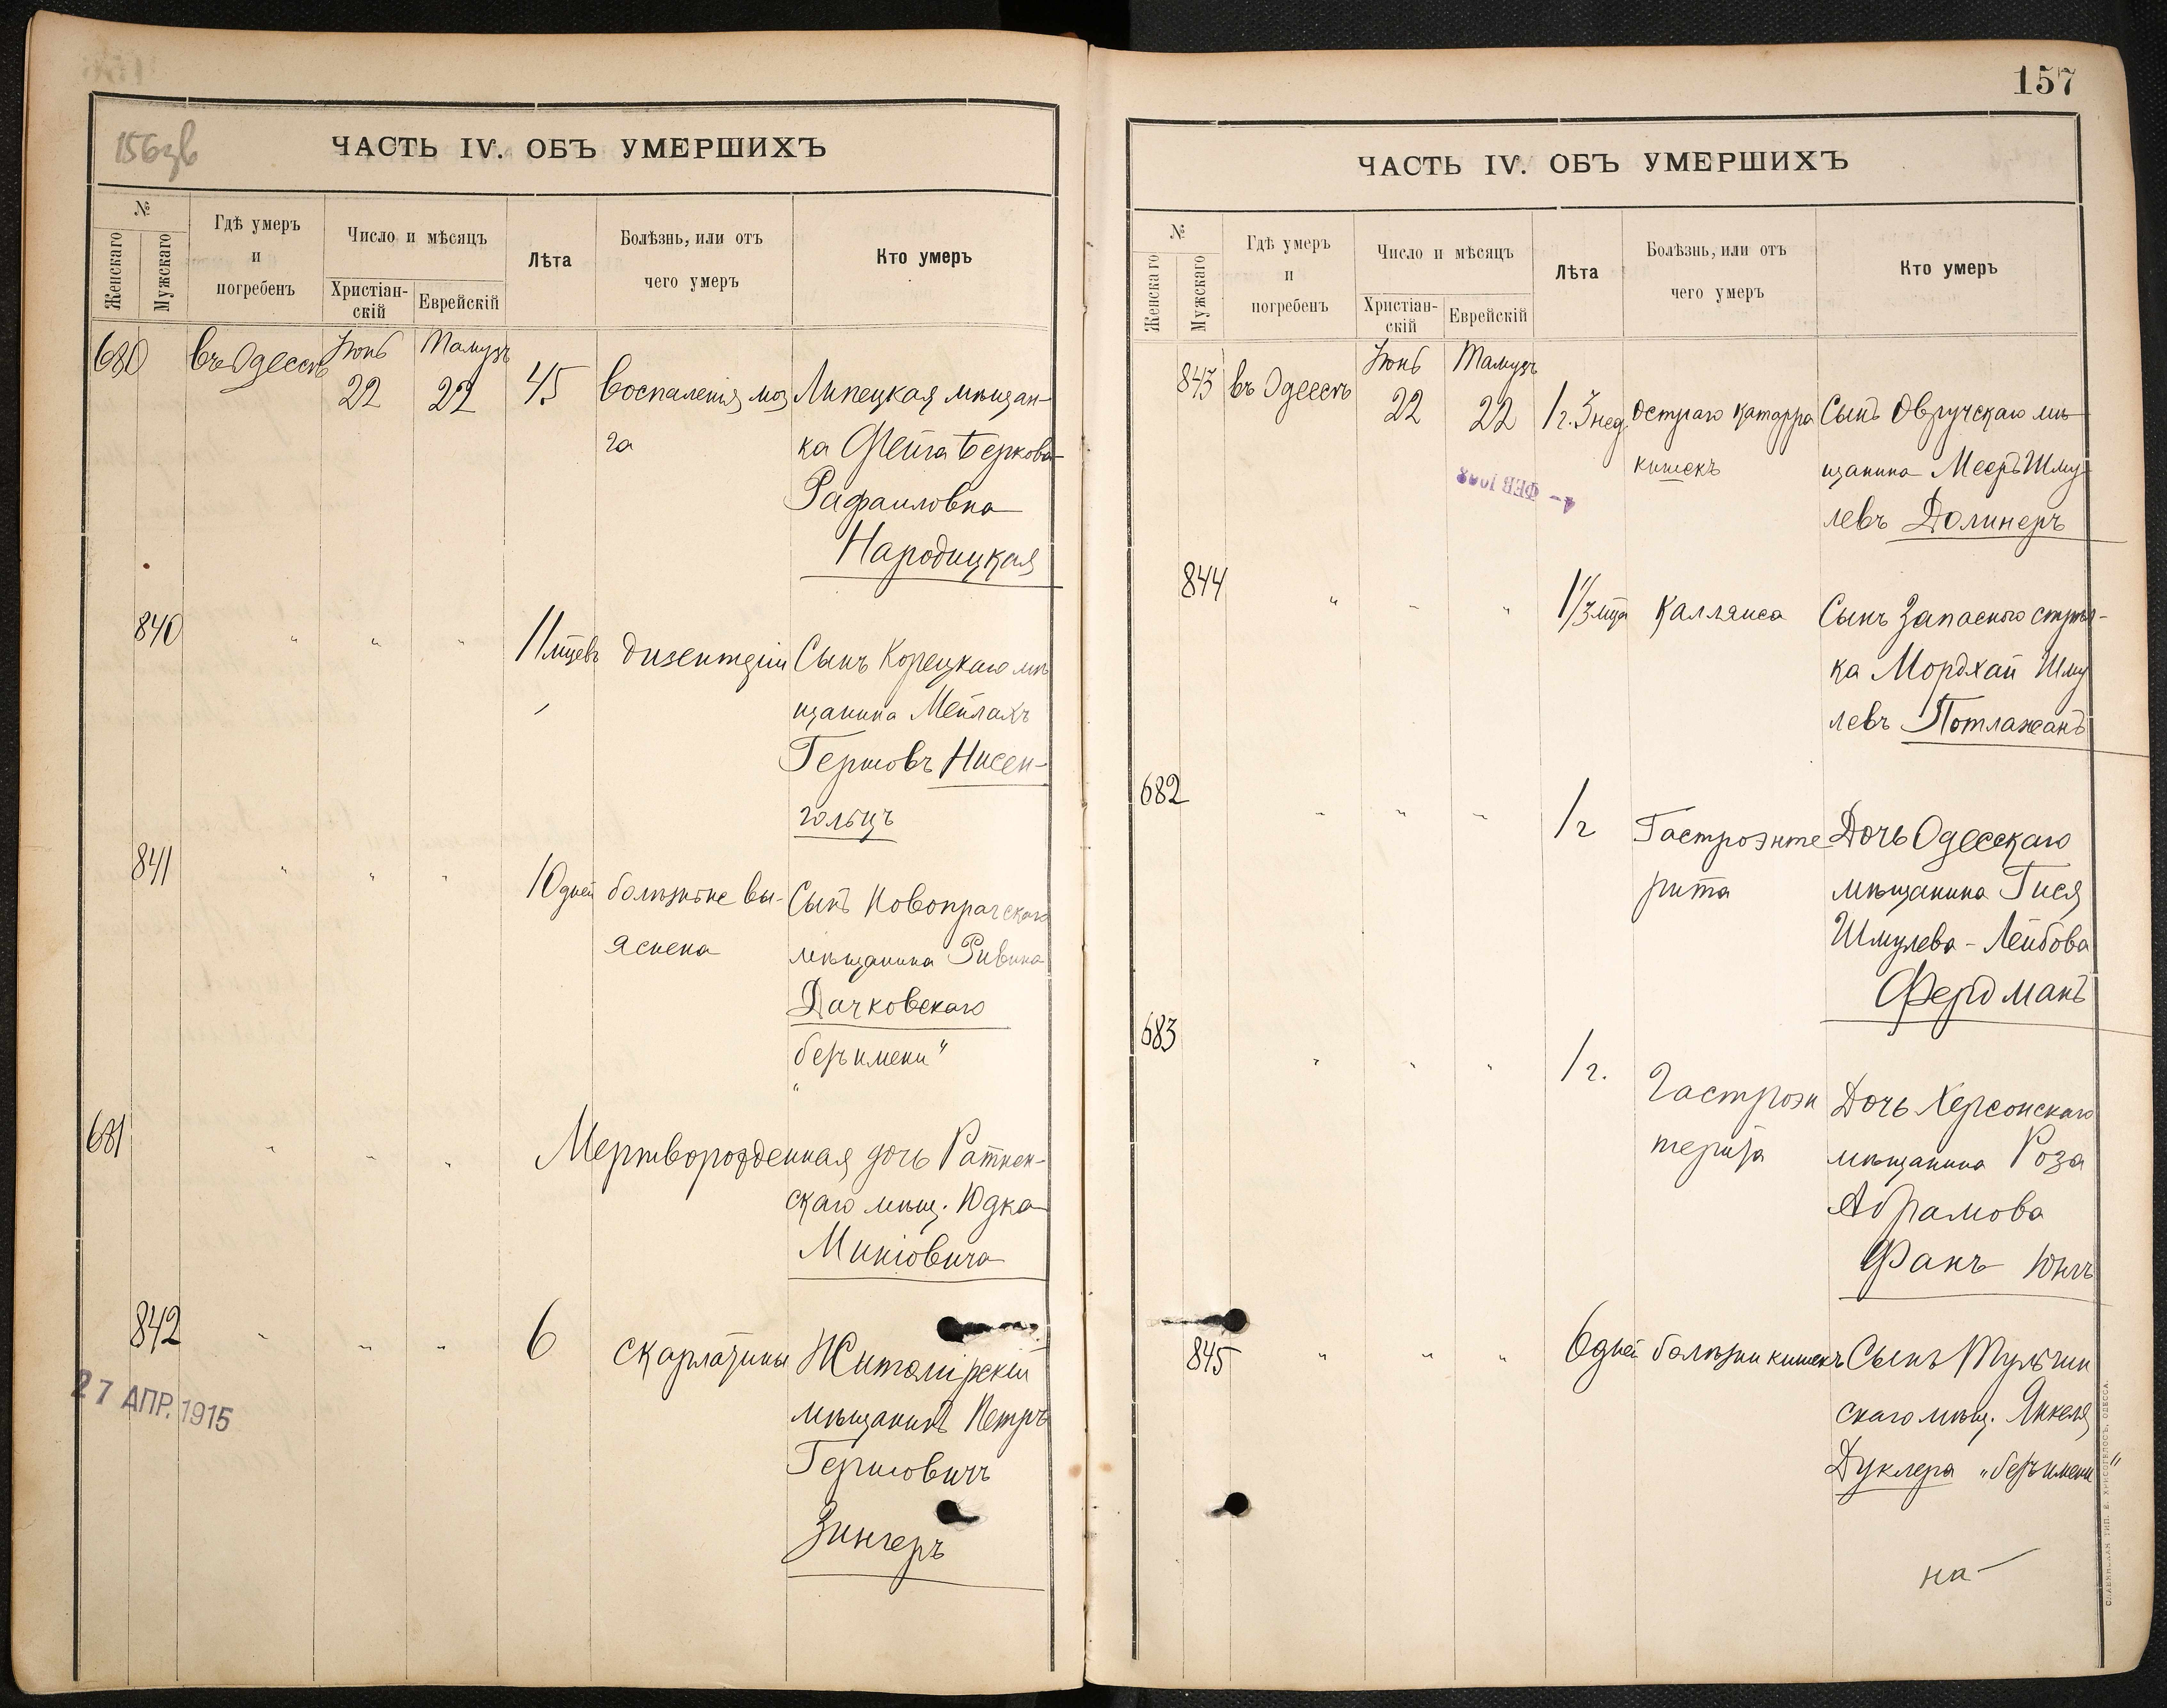 156зв
ЧАСТЬ IV. ОБЪ УМЕРШИХЪ
№
Женскаго
Мужскаго
Гдѣ умеръ
и
погребенъ
Число и мѣсяцъ
Христіан-
скій
Еврейскій
Лѣта
Болѣзнь, или отъ
чего умеръ
Кто умеръ
680 въ Одессѣ Іюнь Тамузъ
22 22 45 воспаленія моз Липецкая мѣщан-
га ка Фейга Беркова
Рафаиловна
Народицкая
840 " " " 11 мцевъ дизентеріи Сынъ Корецкаго мѣ
щанина Мейлахъ
Гершовъ Нисен-
гольцъ
841 " " " 10 дней болѣзнь не вы- Сынъ Новопрагскаго
яснена мѣщанина Рувина
Дачковскаго
безъ имени"
"
681 " " " Мертворожденная дочь Ратнен-
скаго мѣщ. Юдка
842 " " " 6 скарлатины Житомірскій
мѣщанинъ Петръ
Гершовичъ
Зингеръ
27 АПР. 1915
157
ЧАСТЬ IV. ОБЪ УМЕРШИХЪ
№
Женскаго
Мужскаго
Гдѣ умеръ
и
погребенъ
Число и мѣсяцъ
Христіан-
скій
Еврейскій
Лѣта
Болѣзнь, или отъ
чего умеръ
Кто умеръ
843 въ Одессѣ Іюнь Тамузъ
22 22 1 г. 3 нед. остраго катарра Сынъ Овручскаго мѣ
кишекъ щанина Мееръ Шму
левъ Долинеръ
844 " " " коллапса Сынъ Запасного стрѣл-
ка Мордхай Шму
левъ Потлажанъ
682 " " " 1 г Гастроэнте Дочь Одесскаго
рита мѣщанина Гися
Шмулева-Лейбова
Фердманъ
683 " " " 1 г. Гастроэн Дочь Херсонскаго
терита мѣщанина Роза
Абрамова
Фанъ Юнгъ
845 " " " 6 дней болѣзни кишекъ Сынъ Тульчин
скаго мѣщ. Янкеля
Дуклера "безъ имени"
на
СЛАВЯНСКАЯ ТИП. Е. ХРИСОГЕЛОСЪ, ОДЕССА.